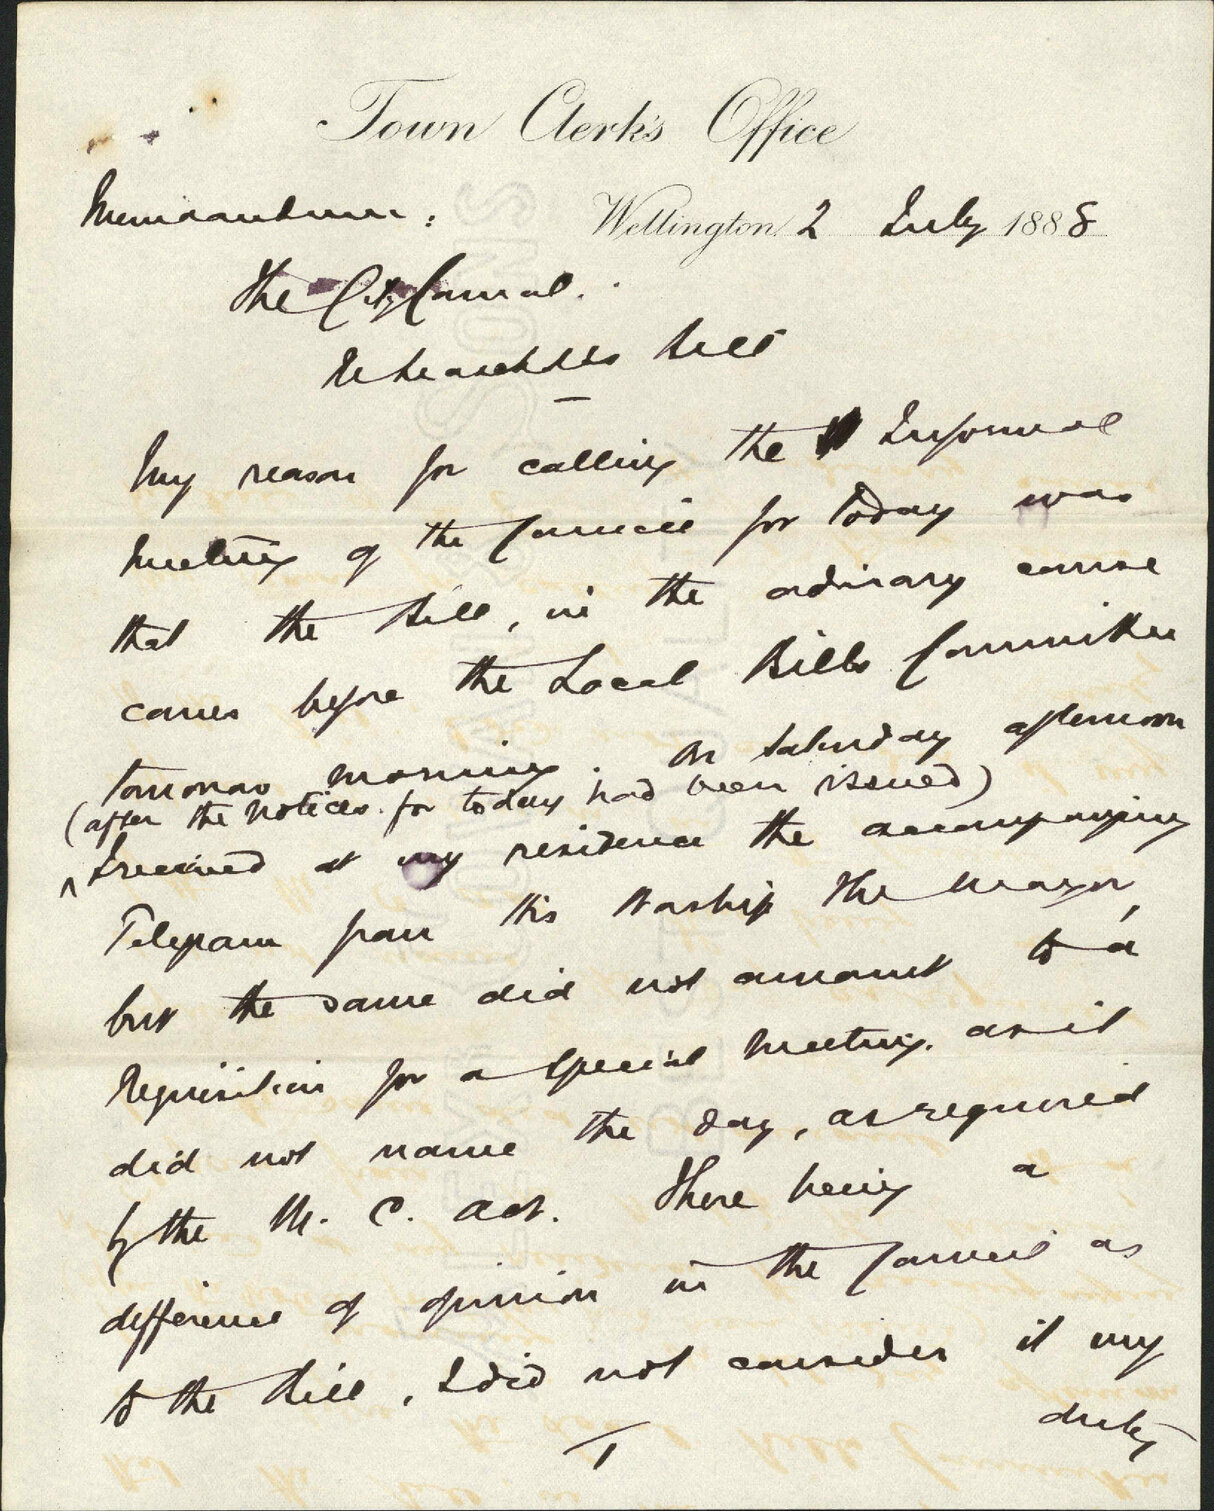 Town Clerk's Office
Memorandum: Wellington 2 July 1888
The City Council.
Bill
My reason for calling the Informal
Meeting of the Council for today was
that the Bill, in the ordinary course
comes before the Local Bills Committee
tomorrow morning. On Saturday afternoon
(after the notices for today had been issued)
I received at my residence the accompanying
Telegram from His Worship the Mayor,
but the same did not amount to a
Requisition for a special meeting, as it
did not name the day, as required
by the M. C. Act. There being a
difference of opinion in the Council as
to the Bill, I did not consider it my
duty